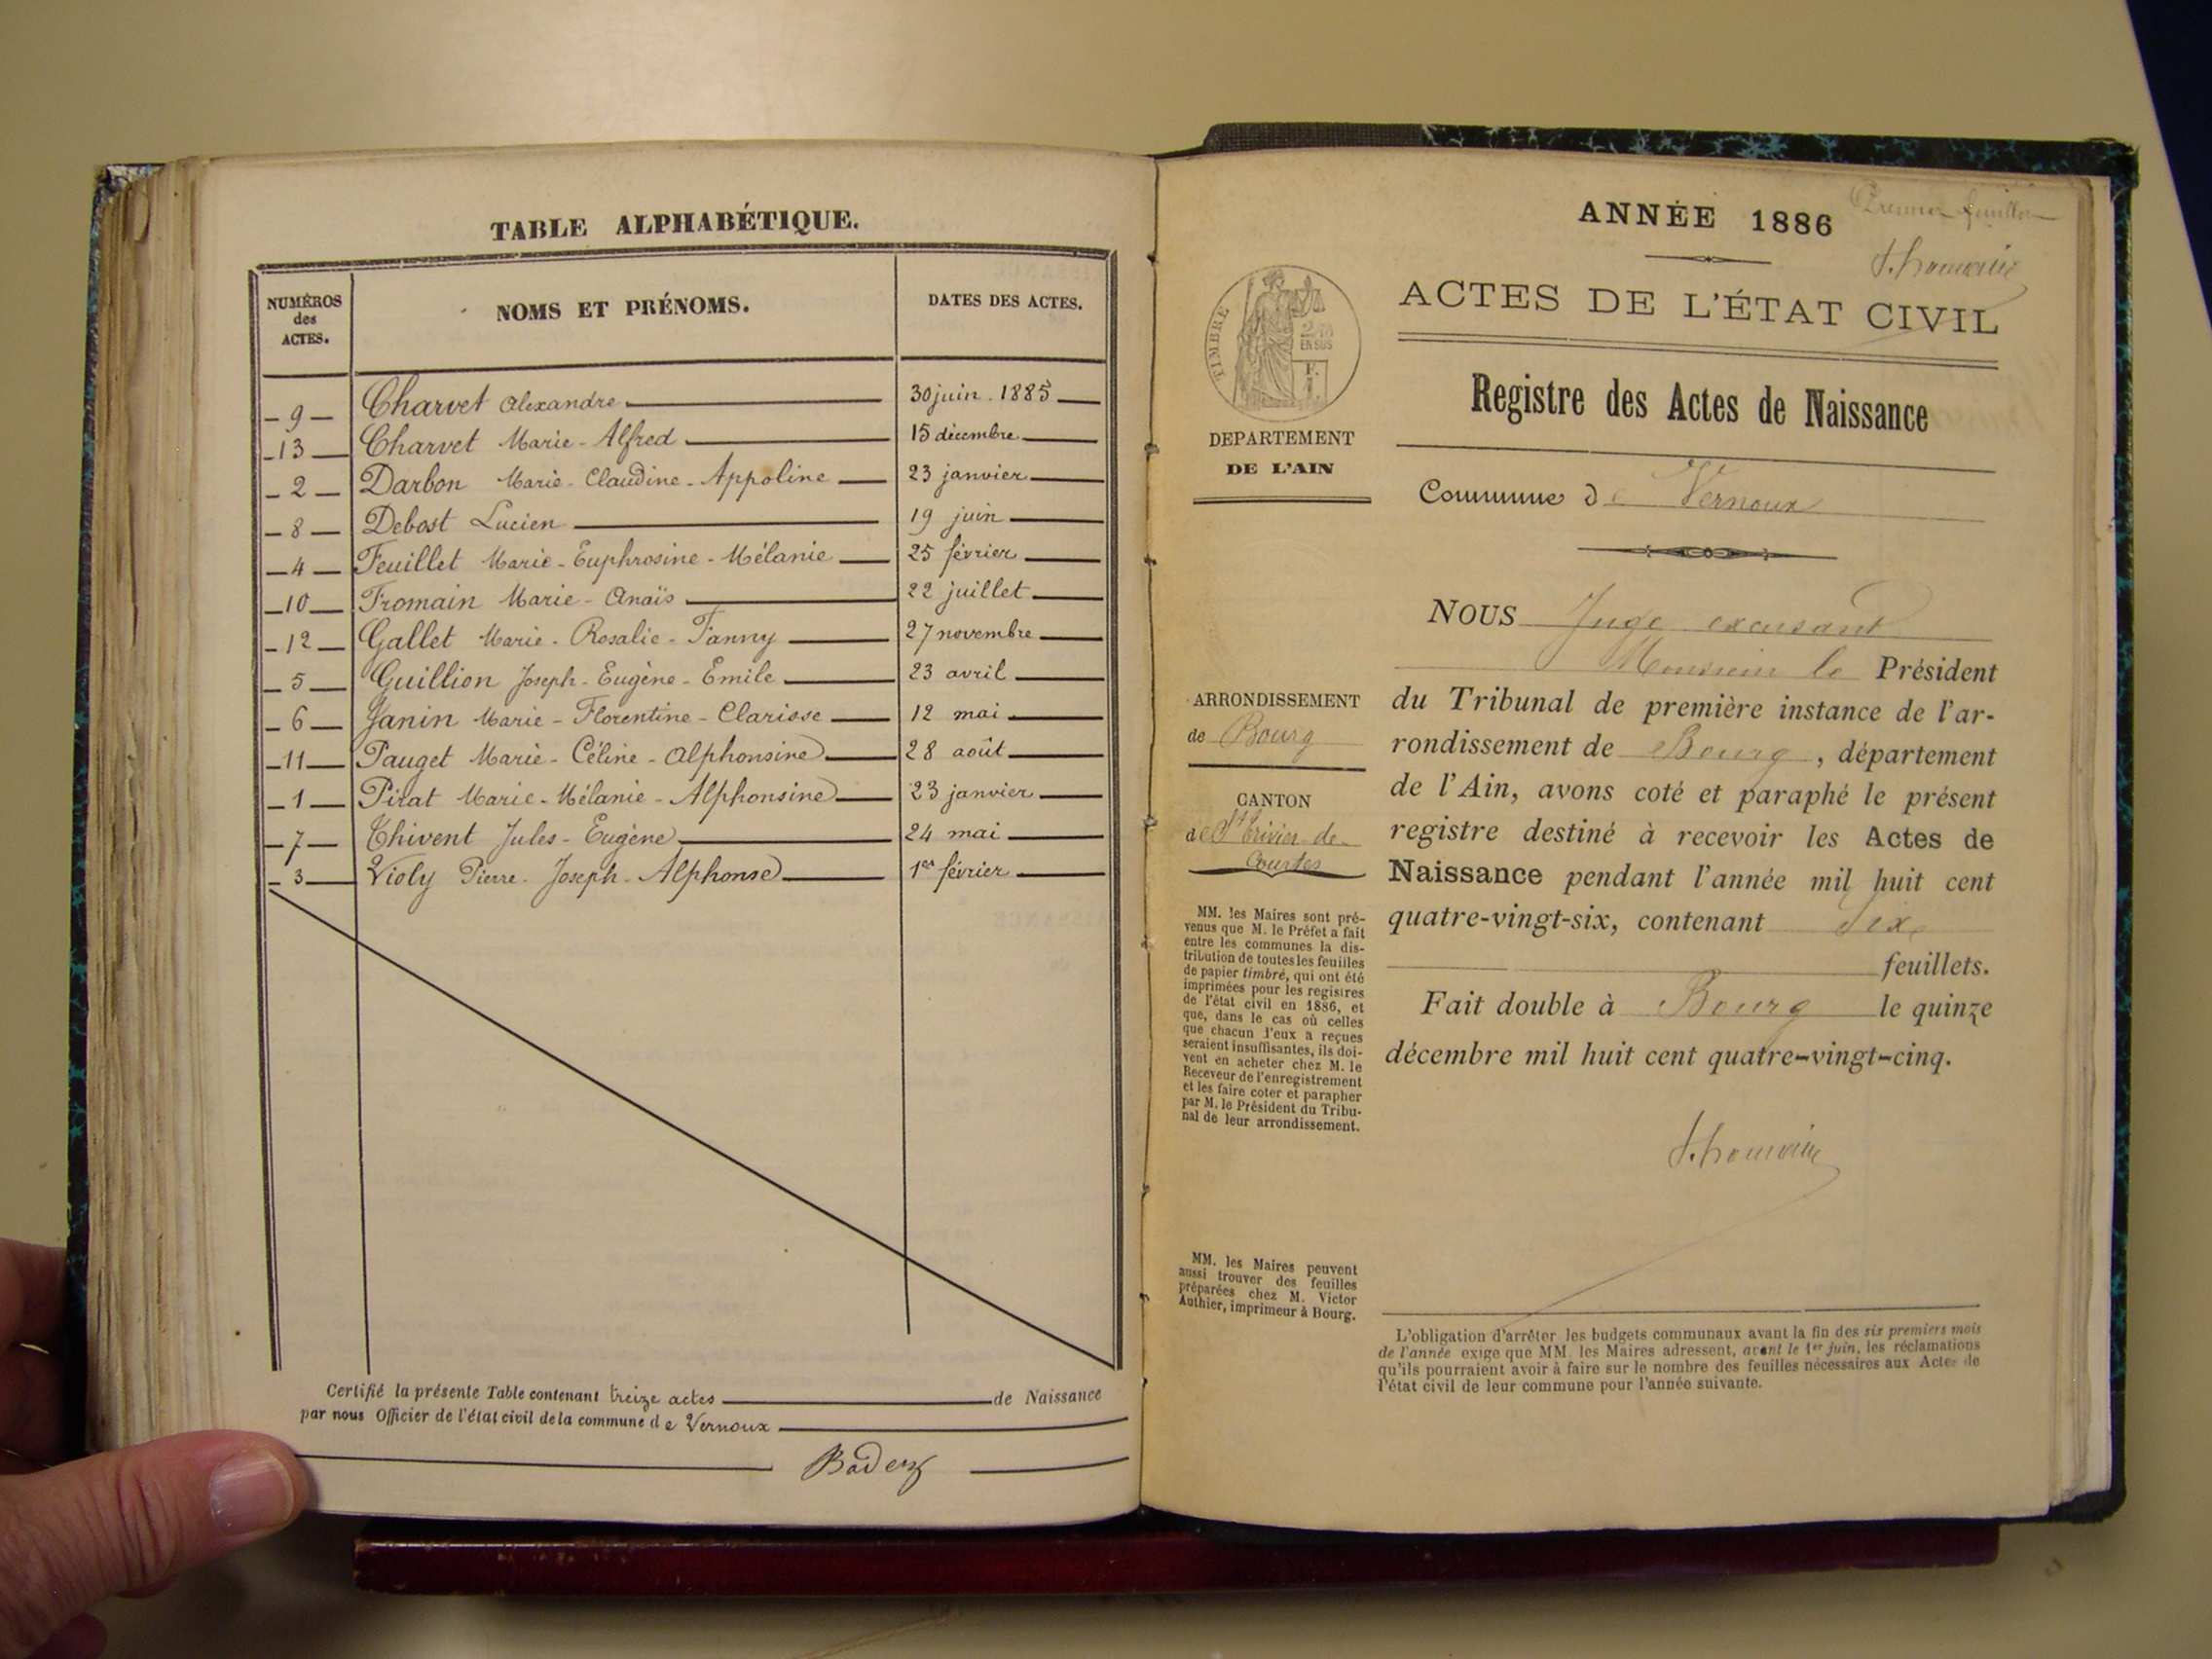 TABLE ALPHABÉTIQUE.
NUMÉROS des ACTES. NOMS ET PRÉNOMS. DATES DES ACTES.
9 Charvet Alexandre 30 juin 1885
13 Charvet Marie-Alfred 15 décembre
2 Darbon Marie-Claudine-Appoline 23 janvier
8 Debost Lucien 19 juin
4 Feuillet Marie-Euphrosine-Mélanie 25 février
10 Fromain Marie-Anaïs 22 juillet
12 Gallet Marie-Rosalie-Fanny 27 novembre
5 Guillion Joseph-Eugène-Emile 23 avril
6 Janin Marie-Florentine-Clarisse 12 mai
11 Pauget Marie-Céline-Alphonsine 28 août
1 Pirat Marie-Mélanie-Alphonsine 23 janvier
7 Thivent Jules-Eugène 24 mai
3 Violy Pierre-Joseph-Alphonse 1er février
Certifié la présente Table contenant treize actes de Naissance
par nous Officier de l'état civil de la commune de Vernoux
Premier feuillet
ANNÉE 1886
ACTES DE L'ÉTAT CIVIL
Registre des Actes de Naissance
Commune de Vernoux
TIMBRE
EN SUS
DEPARTEMENT
DE L'AIN
ARRONDISSEMENT
de Bourg
CANTON
de St Trivier de
Courtes
MM. les Maires sont pré-
venus que M. le Préfet a fait
entre les communes la dis-
tribution de toutes les feuilles
de papier timbré, qui ont été
imprimées pour les registres
de l'état civil en 1886, et
que, dans le cas où celles
que chacun d'eux a reçues
seraient insuffisantes, ils doi-
vent en acheter chez M. le
Receveur de l'enregistrement
et les faire coter et parapher
par M. le Président du Tribu-
nal de leur arrondissement.
MM. les Maires peuvent
aussi trouver des feuilles
préparées chez M. Victor
Authier, imprimeur à Bourg.
NOUS Juge excusant
Monsieur le Président
du Tribunal de première instance de l'ar-
rondissement de Bourg, département
de l'Ain, avons coté et paraphé le présent
registre destiné à recevoir les Actes de
Naissance pendant l'année mil huit cent
quatre-vingt-six, contenant six
feuillets.
Fait double à Bourg le quinze
décembre mil huit cent quatre-vingt-cinq.
L'obligation d'arrêter les budgets communaux avant la fin des six premiers mois
de l'année exige que MM. les Maires adressent, avant le 1er juin, les réclamations
qu'ils pourraient avoir à faire sur le nombre des feuilles nécessaires aux Actes de
l'état civil de leur commune pour l'année suivante.